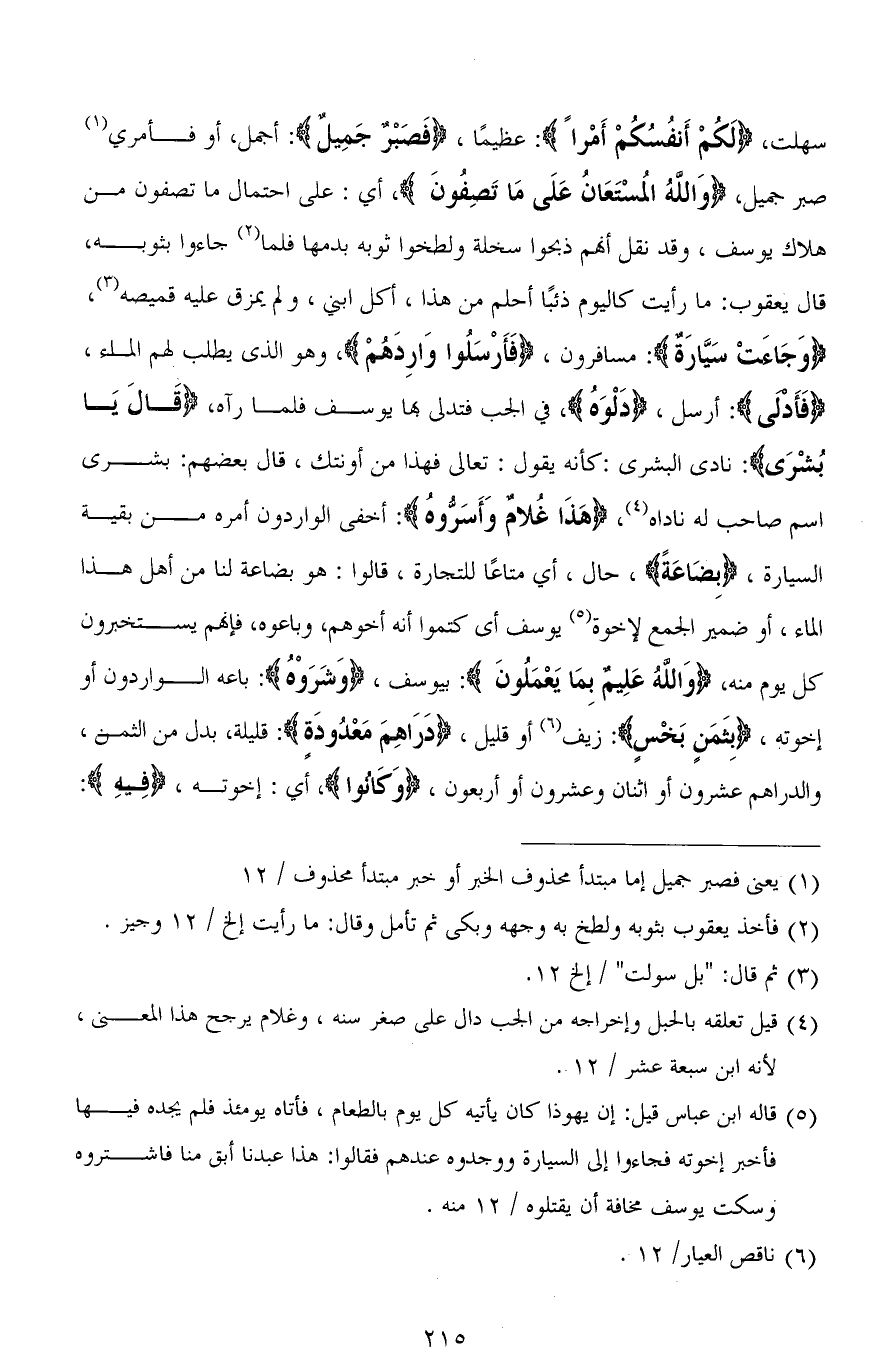 سهلت، ﴿لَكُمْ أَنفُسُكُمْ أَمْراً﴾: عظيمًا ، ﴿فَصَبْرٌ جَمِيلٌ﴾: أجمل، أو فـــأمري(١)
صبر جميل، ﴿وَاللَّهُ المُسْتَعَانُ عَلَى مَا تَصِفُونَ ﴾، أي : على احتمال ما تصفون مـن
هلاك يوسف ، وقد نقل أنهم ذبحوا سخلة ولطخوا ثوبه بدمها فلما(٢) جاءوا بثوبـــه،
قال يعقوب: ما رأيت كاليوم ذئبًا أحلم من هذا ، أكل ابني ، و لم يمزق عليه قميصه(٣)،
﴿وَجَاءَتْ سَيَّارَةٌ﴾: مسافرون ، ﴿فَأَرْسَلُوا وَارِدَهُمْ﴾، وهو الذى يطلب لهم المـاء ،
﴿فَأَدْلَى﴾: أرسل ، ﴿دَلْوَهُ﴾، في الجب فتدلى بها يوســف فلمــا رآه، ﴿قَــالَ يَــا
بُشْرَى﴾: نادى البشرى :كأنه يقول : تعالى فهذا من أونتك ، قال بعضهم: بشـــرى
اسم صاحب له ناداه(٤)، ﴿هَذَا غُلامٌ وَأَسَرُّوهُ﴾: أخفى الواردون أمره مـــن بقيـة
السيارة ، ﴿بِضَاعَةً﴾ ، حال ، أي متاعًا للتجارة ، قالوا : هو بضاعة لنا من أهل هـــذا
الماء ، أو ضمير الجمع لإخوة(٥) يوسف أى كتموا أنه أخوهم، وباعوه، فإنهم يســتخبرون
كل يوم منه، ﴿وَاللَّهُ عَلِيمٌ بِمَا يَعْمَلُونَ ﴾: بيوسف ، ﴿وَشَرَوْهُ﴾: باعه الـــواردون أو
إخوته ، ﴿بِثَمَنٍ بَخْسٍ﴾: زيف(٦) أو قليل ، ﴿دَرَاهِمَ مَعْدُودَةٍ﴾: قليلة، بدل من الثمـن ،
والدراهم عشرون أو اثنان وعشرون أو أربعون ، ﴿وَكَانُوا﴾، أي : إخوتــه ، ﴿فِـيهِ ﴾:
(١) يعنى فصبر جميل إما مبتدأ محذوف الخبر أو خبر مبتدأ محذوف / ١٢
(٢) فأخذ يعقوب بثوبه ولطخ به وجهه وبكى ثم تأمل وقال: ما رأيت إلخ / ١٢ وجيز .
(٣) ثم قال: "بل سولت" / إلخ ١٢.
(٤) قيل تعلقه بالحبل وإخراجه من الجب دال على صغر سنه ، وغلام يرجح هذا المعـــنى ،
لأنه ابن سبعة عشر / ١٢ .
(٥) قاله ابن عباس قيل: إن يهوذا كان يأتيه كل يوم بالطعام ، فأتاه يومئذ فلم يجده فيـــها
فأخبر إخوته فجاءوا إلى السيارة ووجدوه عندهم فقالوا: هذا عبدنا أبق منا فاشـــتروه
وسكت يوسف مخافة أن يقتلوه / ١٢ منه .
(٦) ناقص العيار/ ١٢ .
٢١٥